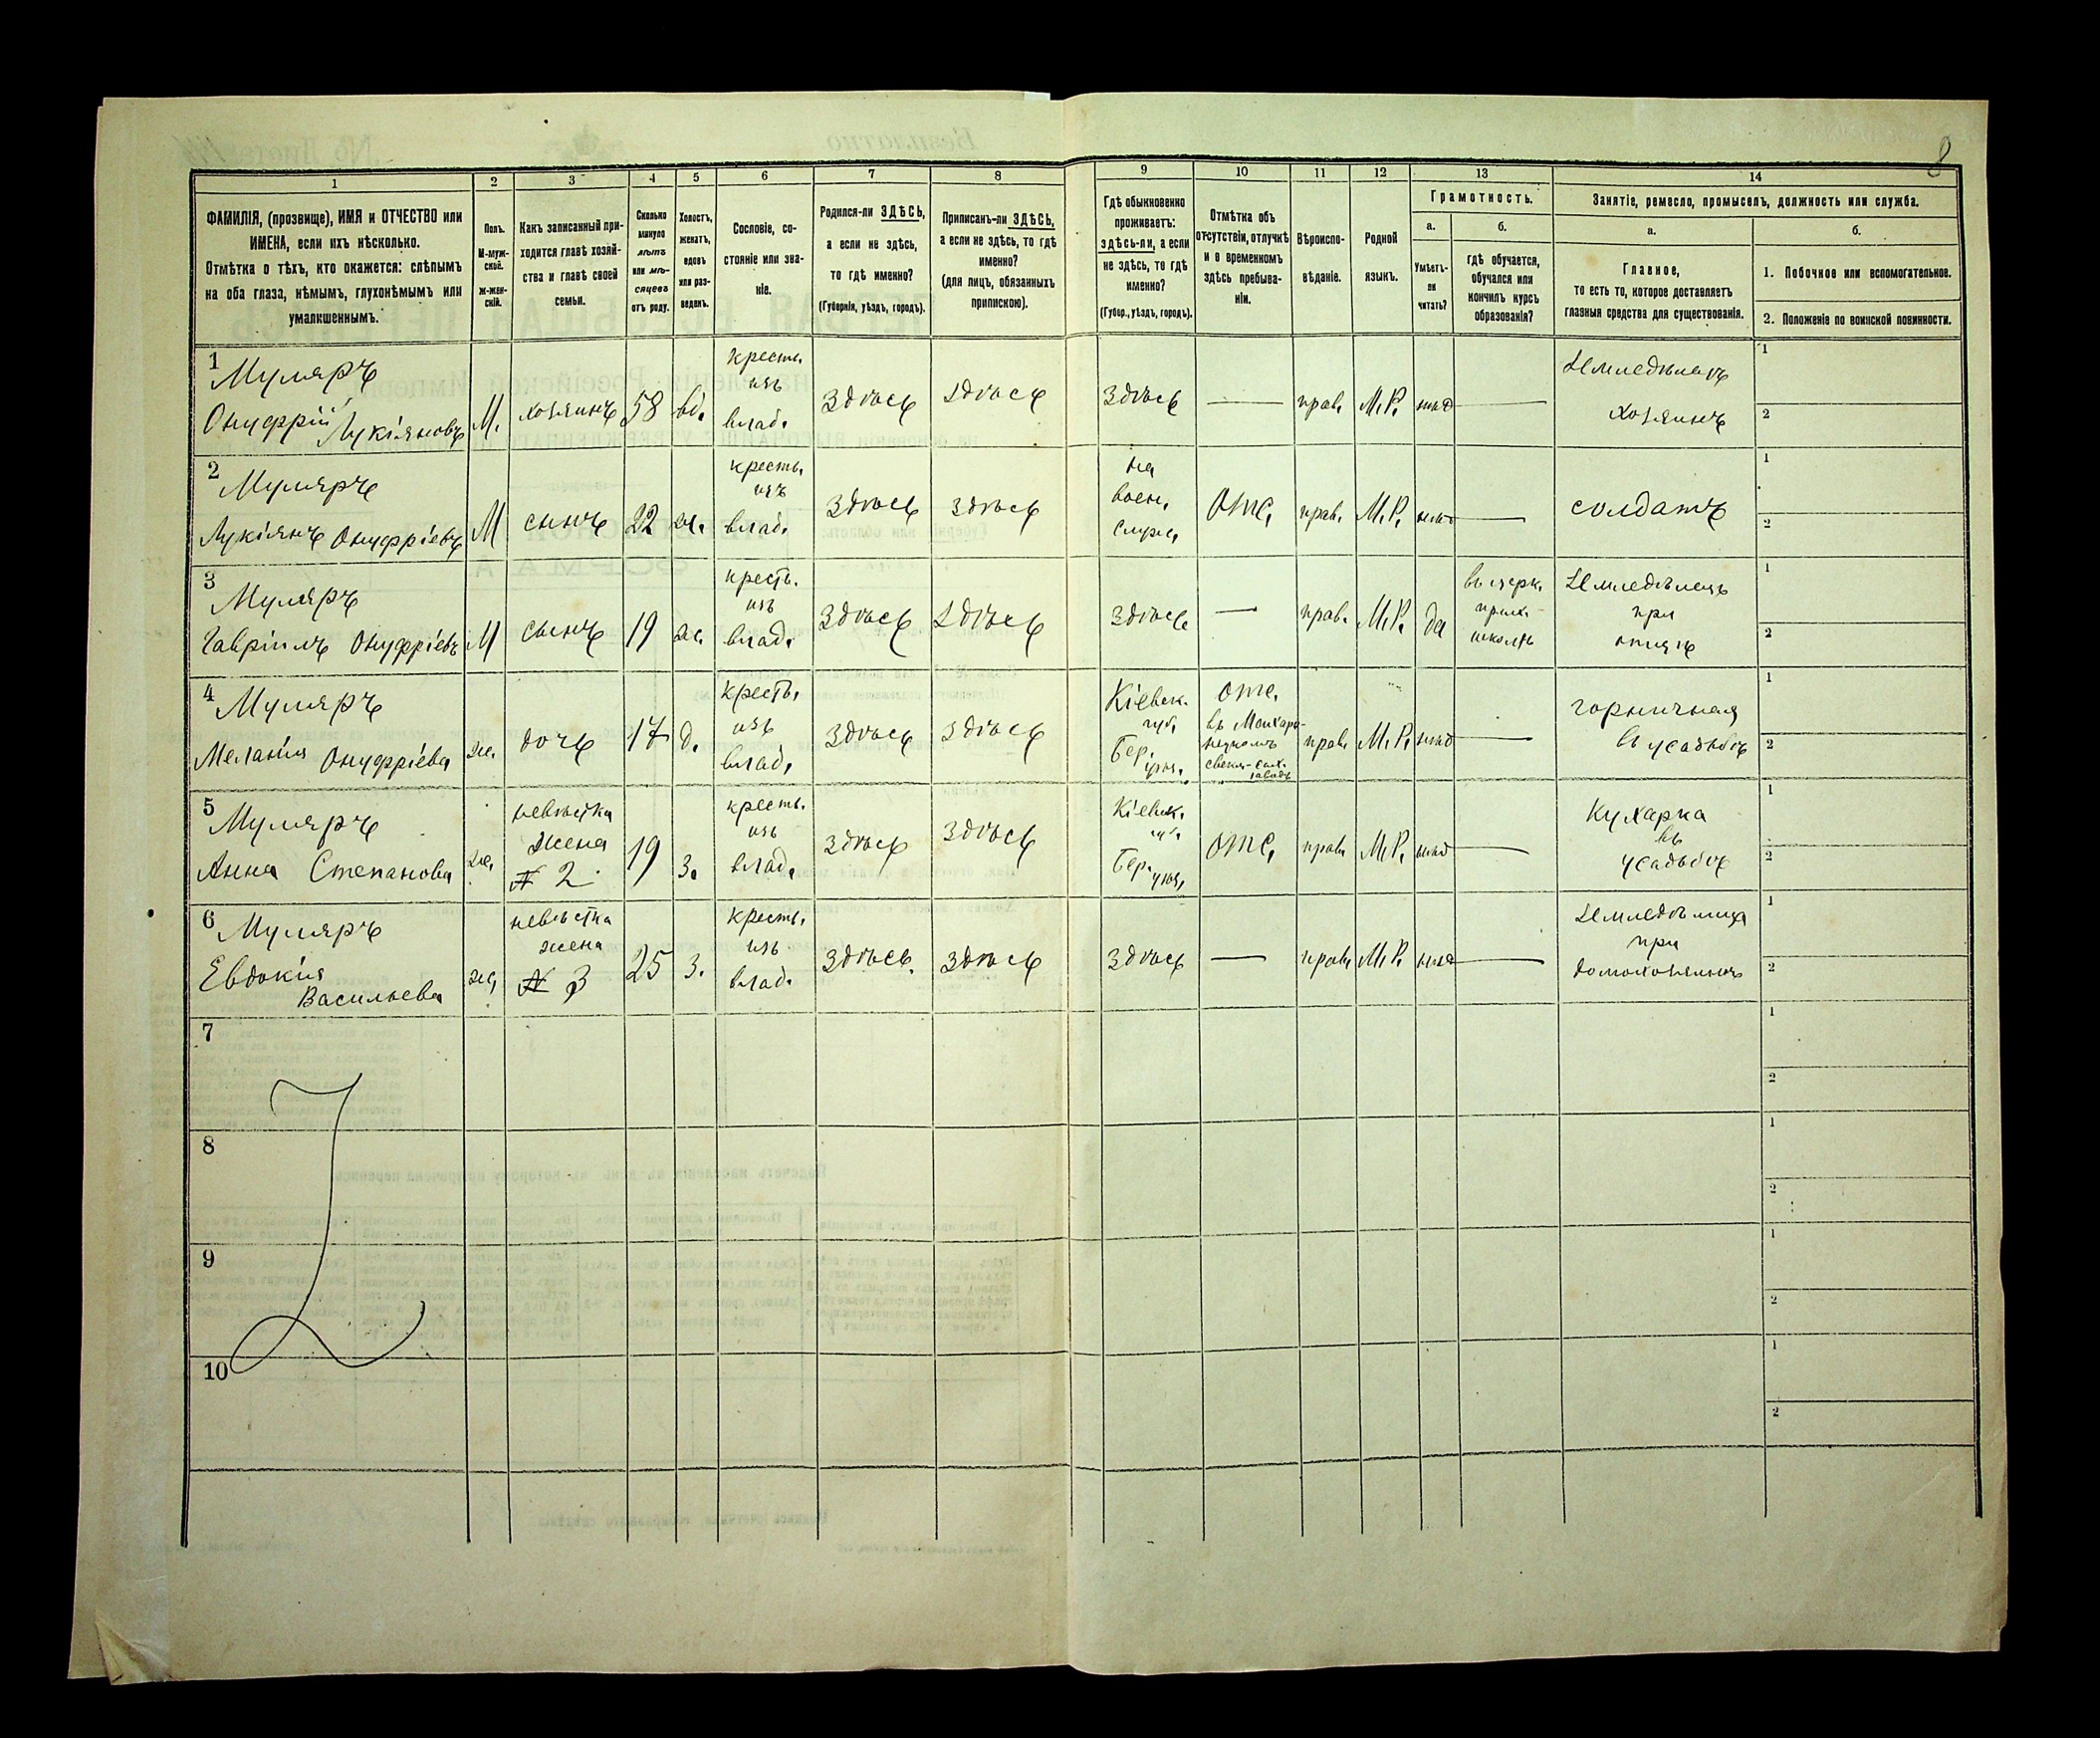 8
1 2 3 4 5 6 7 8 9 10 11 12 13 14
ФАМИЛІЯ, (прозвище), ИМЯ и ОТЧЕСТВО или
ИМЕНА, если ихъ нѣсколько.
Отмѣтка о тѣхъ, кто окажется: слѣпымъ
на оба глаза, нѣмымъ, глухонѣмымъ или
умалишеннымъ.
Полъ.
М-муж-
ской.
Ж-жен-
скій.
Какъ записанный при-
ходится главѣ хозяй-
ства и главѣ своей
семьи.
Сколько
минуло
лѣтъ
или мѣ-
сяцевъ
отъ роду.
Холостъ,
женатъ,
вдовъ
или раз-
веденъ.
Сословіе, со-
стояніе или зва-
ніе.
Родился-ли ЗДѢСЬ,
а если не здѣсь,
то гдѣ именно?
(Губернія, уѣздъ, городъ).
Приписанъ-ли ЗДѢСЬ,
а если не здѣсь, то гдѣ
именно?
(для лицъ, обязанныхъ
припискою).
Гдѣ обыкновенно
проживаетъ:
здѣсь-ли, а если
не здѣсь, то гдѣ
именно?
(Губер., уѣздъ, городъ).
Отмѣтка объ
отсутствіи, отлучкѣ
и о временномъ
здѣсь пребыва-
ніи.
Вѣроиспо-
вѣданіе.
Родной
языкъ.
Грамотность.
а.
Умѣетъ-
ли
читать?
б.
гдѣ обучается,
обучался или
кончилъ курсъ
образованія?
Занятіе, ремесло, промыселъ, должность или служба.
а.
Главное,
то есть то, которое доставляетъ
главныя средства для существованія.
б.
1. Побочное или вспомогательное.
2. Положеніе по воинской повинности.
1
Муляръ
Онуфрій Лукіяновъ
М.
хозяинъ
58
вд.
кресть.
изъ
влад.
здѣсь
здѣсь
здѣсь
—
прав.
М.Р.
—
Земледѣлецъ
хозяинъ
1
2
2
Муляръ
Лукіянъ Онуфріевъ
М
сынъ
22
ж.
кресть.
изъ
влад.
здѣсь
здѣсь
на
воен.
служ.
отс.
прав.
М.Р.
—
солдатъ
1
2
3
Муляръ
Гавріилъ Онуфріевъ
М
сынъ
19
ж.
кресть.
изъ
влад.
здѣсь
здѣсь
здѣсь
—
прав.
М.Р.
да
въ церк.
прих.
школѣ
Земледѣлецъ
при
отцѣ
1
2
4
Муляръ
Меланія Онуфріева
ж.
дочь
17
д.
кресть.
изъ
влад.
здѣсь
здѣсь
Кіевск.
губ.
Бер.
уѣз.
отс.
прав.
М.Р.
—
горничная
въ усадьбѣ
1
2
5
Муляръ
Анна Степанова
ж.
невѣстка
жена
№ 2
19
з.
кресть.
изъ
влад.
здѣсь
здѣсь
Кіевск.
губ.
Бер. уѣз.
отс.
прав.
М.Р.
—
Кухарка
въ
усадьбѣ
1
2
6
Муляръ
Евдокія
Васильева
ж.
невѣстка
жена
№ 3
25
з.
кресть.
изъ
влад.
здѣсь.
здѣсь
здѣсь
—
прав.
М.Р.
—
Земледѣлица
при
1
2
7
1
2
8
1
2
9
1
2
10
1
2